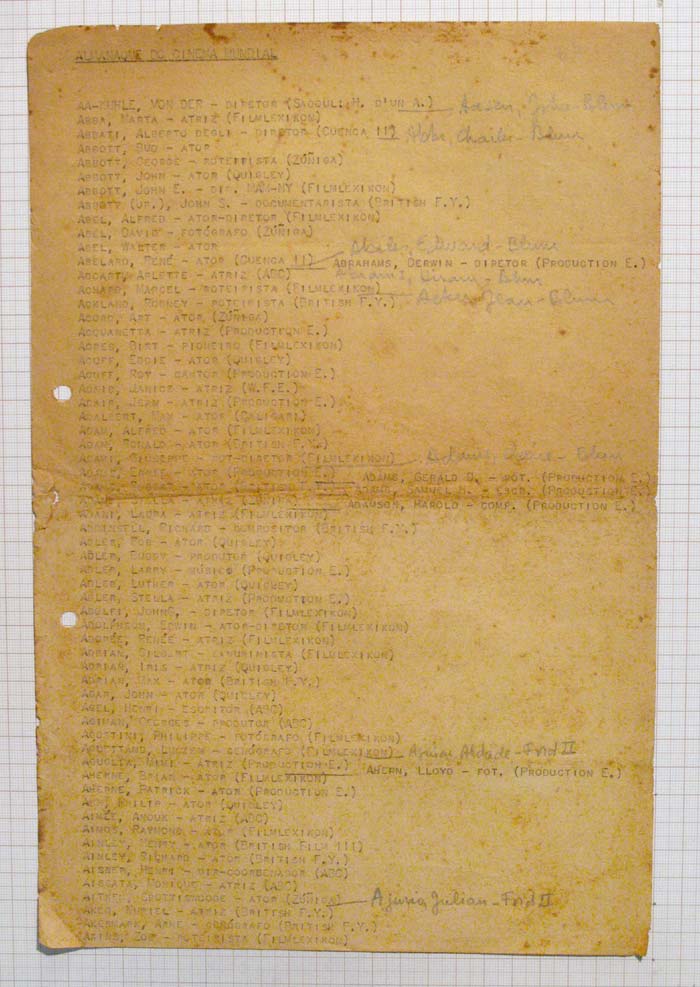 ALMANAQUE DO CINEMA MUNDIAL
AA-KUHLE, VON DER - DIRETOR (SADOUL: H. D'UN A.)
ABBA, MARTA - ATRIZ (FILMLEXIKON)
ABBATI, ALBERTO DEGLI - DIRETOR (CUENCA II)
ABBOTT, BUD - ATOR
ABBOTT, GEORGE - ROTEIRISTA (ZÚÑIGA)
ABBOTT, JOHN - ATOR (QUIGLEY)
ABBOTT, JOHN E. - DIR. MAM-NY (FILMLEXIKON)
ABBOTT (JR.), JOHN S. - DOCUMENTARISTA (BRITISH F.Y.)
ABEL, ALFRED - ATOR-DIRETOR (FILMLEXIKON)
ABEL, DAVID - FOTÓGRAFO (ZÚÑIGA)
ABEL, WALTER - ATOR
ABELARD, RENÉ - ATOR (CUENCA II) ABRAHAMS, DERWIN - DIRETOR (PRODUCTION E.)
ACCART, ARLETTE - ATRIZ (ABC)
ACHARD, MARCEL - ROTEIRISTA (FILMLEXIKON)
ACKLAND, RODNEY - ROTEIRISTA (BRITISH F.Y.) Acker, Jean - Blum
ACORD, ART - ATOR (ZÚÑIGA)
ACQUANETTA - ATRIZ (PRODUCTION E.)
ACRES, BIRT - PIONEIRO (FILMLEXIKON)
ACUFF, EDDIE - ATOR (QUIGLEY)
ACUFF, ROY - CANTOR (PRODUCTION E.)
ADAIR, JANICE - ATRIZ (W.F.E.)
ADAIR, JEAN - ATRIZ (PRODUCTION E.)
ADALBERT, MAX - ATOR (CALIGARI)
ADAM, ALFRED - ATOR (FILMLEXIKON)
ADAM, RONALD - ATOR (BRITISH F.Y.)
ADAMI, GIUSEPPE - ROT-DIRETOR (FILMLEXIKON)
ADAMS, ERNIE - ATOR (PRODUCTION E.) ADAMS, GERALD D. - ROT. (PRODUCTION E.)
ADAMS, SAMUEL H. - ESCR. (PRODUCTION E.)
ADAMSON, HAROLD - COMP. (PRODUCTION E.)
ADANI, LAURA - ATRIZ (FILMLEXIKON)
ADDINSELL, RICHARD - COMPOSITOR (BRITISH F.Y.)
ADLER, BOB - ATOR (QUIGLEY)
ADLER, BUDDY - PRODUTOR (QUIGLEY)
ADLER, LARRY - MÚSICO (PRODUCTION E.)
ADLER, LUTHER - ATOR (QUIGLEY)
ADLER, STELLA - ATRIZ (PRODUCTION E.)
ADOLFI, JOHNG, - DIRETOR (FILMLEXIKON)
ADOLPHSON, EDWIN - ATOR-DIRETOR (FILMLEXIKON)
ADORÉE, RENÉE - ATRIZ (FILMLEXIKON)
ADRIAN, GILBERT - FIGURINISTA (FILMLEXIKON)
ADRIAN, IRIS - ATRIZ (QUIGLEY)
ADRIAN, MAX - ATOR (BRITISH F.Y.)
AGAR, JOHN - ATOR (QUIGLEY)
AGEL, HENRI - ESCRITOR (ABC)
AGIMAN, GEORGES - PRODUTOR (ABC)
AGOSTINI, PHILIPPE - FOTÓGRAFO (FILMLEXIKON)
AGUETTAND, LUCIEN - CENÓGRAFO (FILMLEXIKON)
AGUGLIA, MIMI - ATRIZ (PRODUCTION E.) AHERN, LLOYD - FOT. (PRODUCTION E.)
AHERNE, BRIAN - ATOR (FILMLEXIKON)
AHERNE, PATRICK - ATOR (PRODUCTION E.)
AHN, PHILIP - ATOR (QUIGLEY)
AIMÉE, ANOUK - ATRIZ (ABC)
AIMOS, RAYMOND - ATOR (FILMLEXIKON)
AINLEY, HENRY - ATOR (BRITISH FILM III)
AINLEY, RICHARD - ATOR (BRITISH F.Y.)
AISNER, HENRI - DIR-COORDENADOR (ABC)
AISCATA, MONIQUE - ATRIZ (ABC)
AITKEN, SPOTTISWOODE - ATOR (ZÚÑIGA) Ajuria, Julian - Fred II
AKED, MURIEL - ATRIZ (BRITISH F.Y.)
AKERMARK, ARNE - CENÓGRAFO (BRITISH F.Y.)
AKINS, ZOE - ROTEIRISTA (FILMLEXIKON)